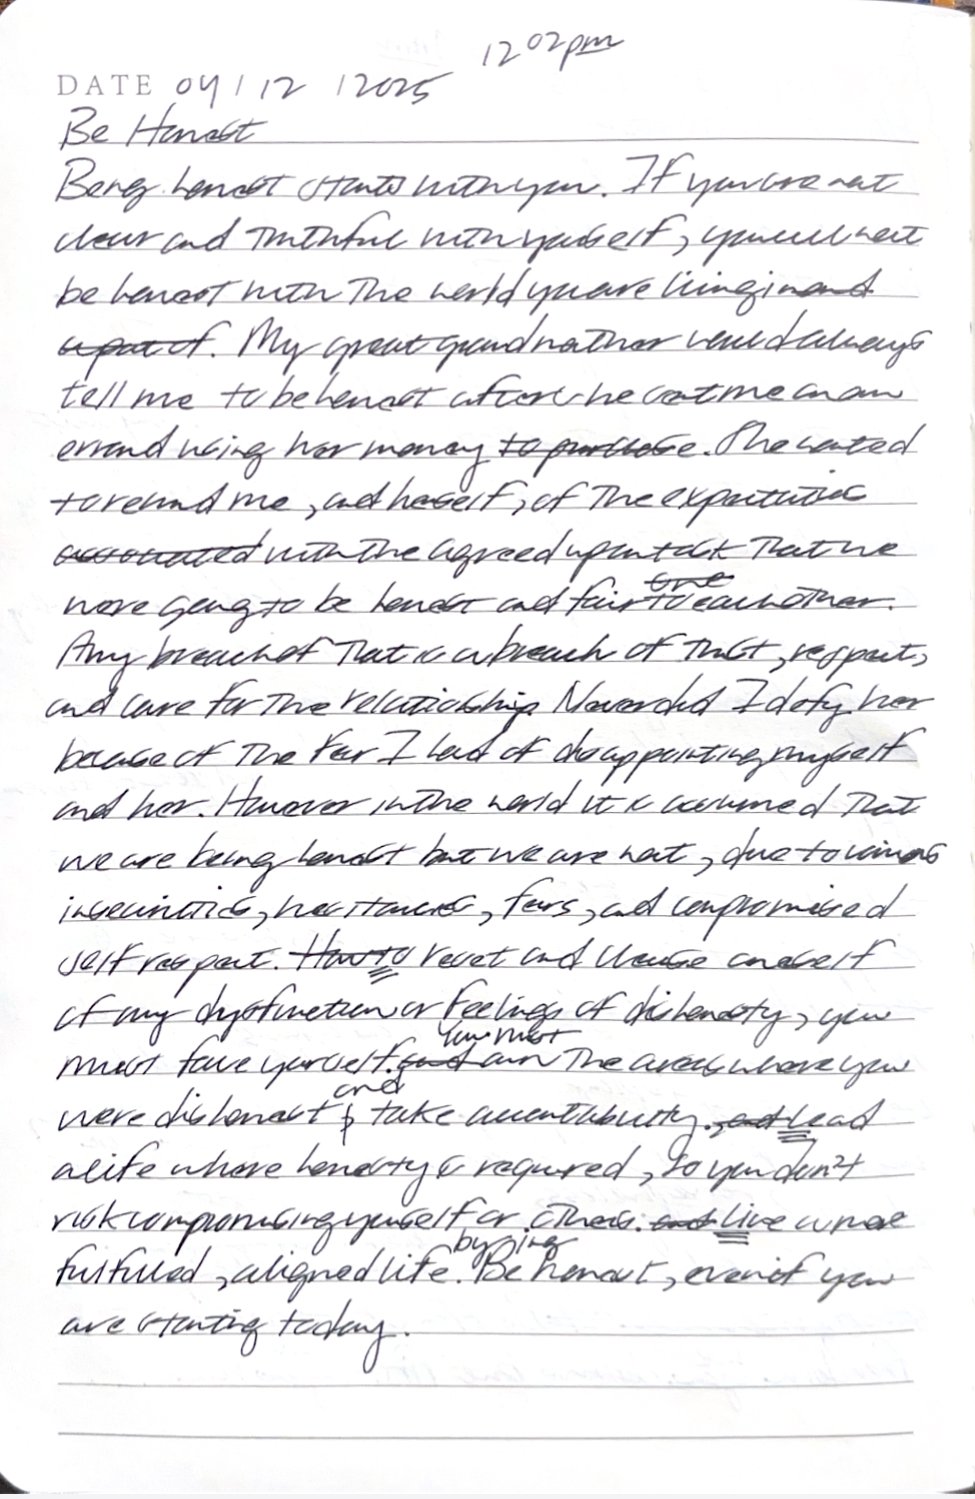 12 02pm
DATE 04 / 12 / 2025
Be Honest
Being honest starts with you. If you are not
clear and truthful with yourself, you will not
be honest with the world you are living in and
a part of. My great grandmother would always
tell me to be honest after she sent me on an
errand using her money to purchase. She wanted
to remind me, and herself, of the expectations
associated with the agreed upon task that we
were going to be honest and fair to eachother.
one
Any breach of that is a breach of trust, respect,
and care for the relationship. Never did I defy her
because of the fear I had of disappointing myself
and her. However in the world it is assumed that
we are being honest but we are not, due to various
insecurities, hesitancies, fears, and compromised
self respect. How to reset and cleanse oneself
of any dysfunction or feelings of dishonesty, you
must face yourself. and own the areas where you
You must
were dishonest & take accountability. , and Lead
and
a life where honesty is required, so you don't
risk compromising yourself or others. and Live a more
fulfilled, aligned life. Be honest, even if you
by ing
are starting today.